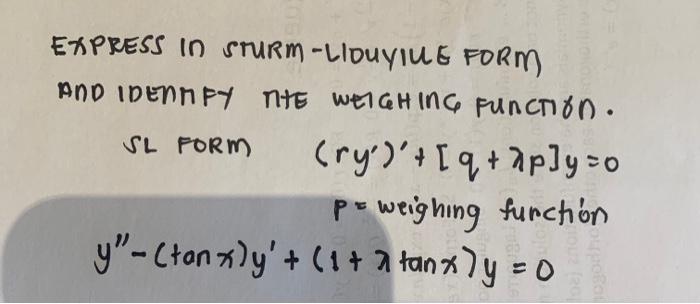 EXPRESS IN STURM-LIOUVILLE FORM
AND IDENTIFY THE WEIGHING FUNCTION.
SL FORM (ry')' + [q + λp]y = 0
p = weighing function
y" - (tan x)y' + (1 + λ tan x)y = 0